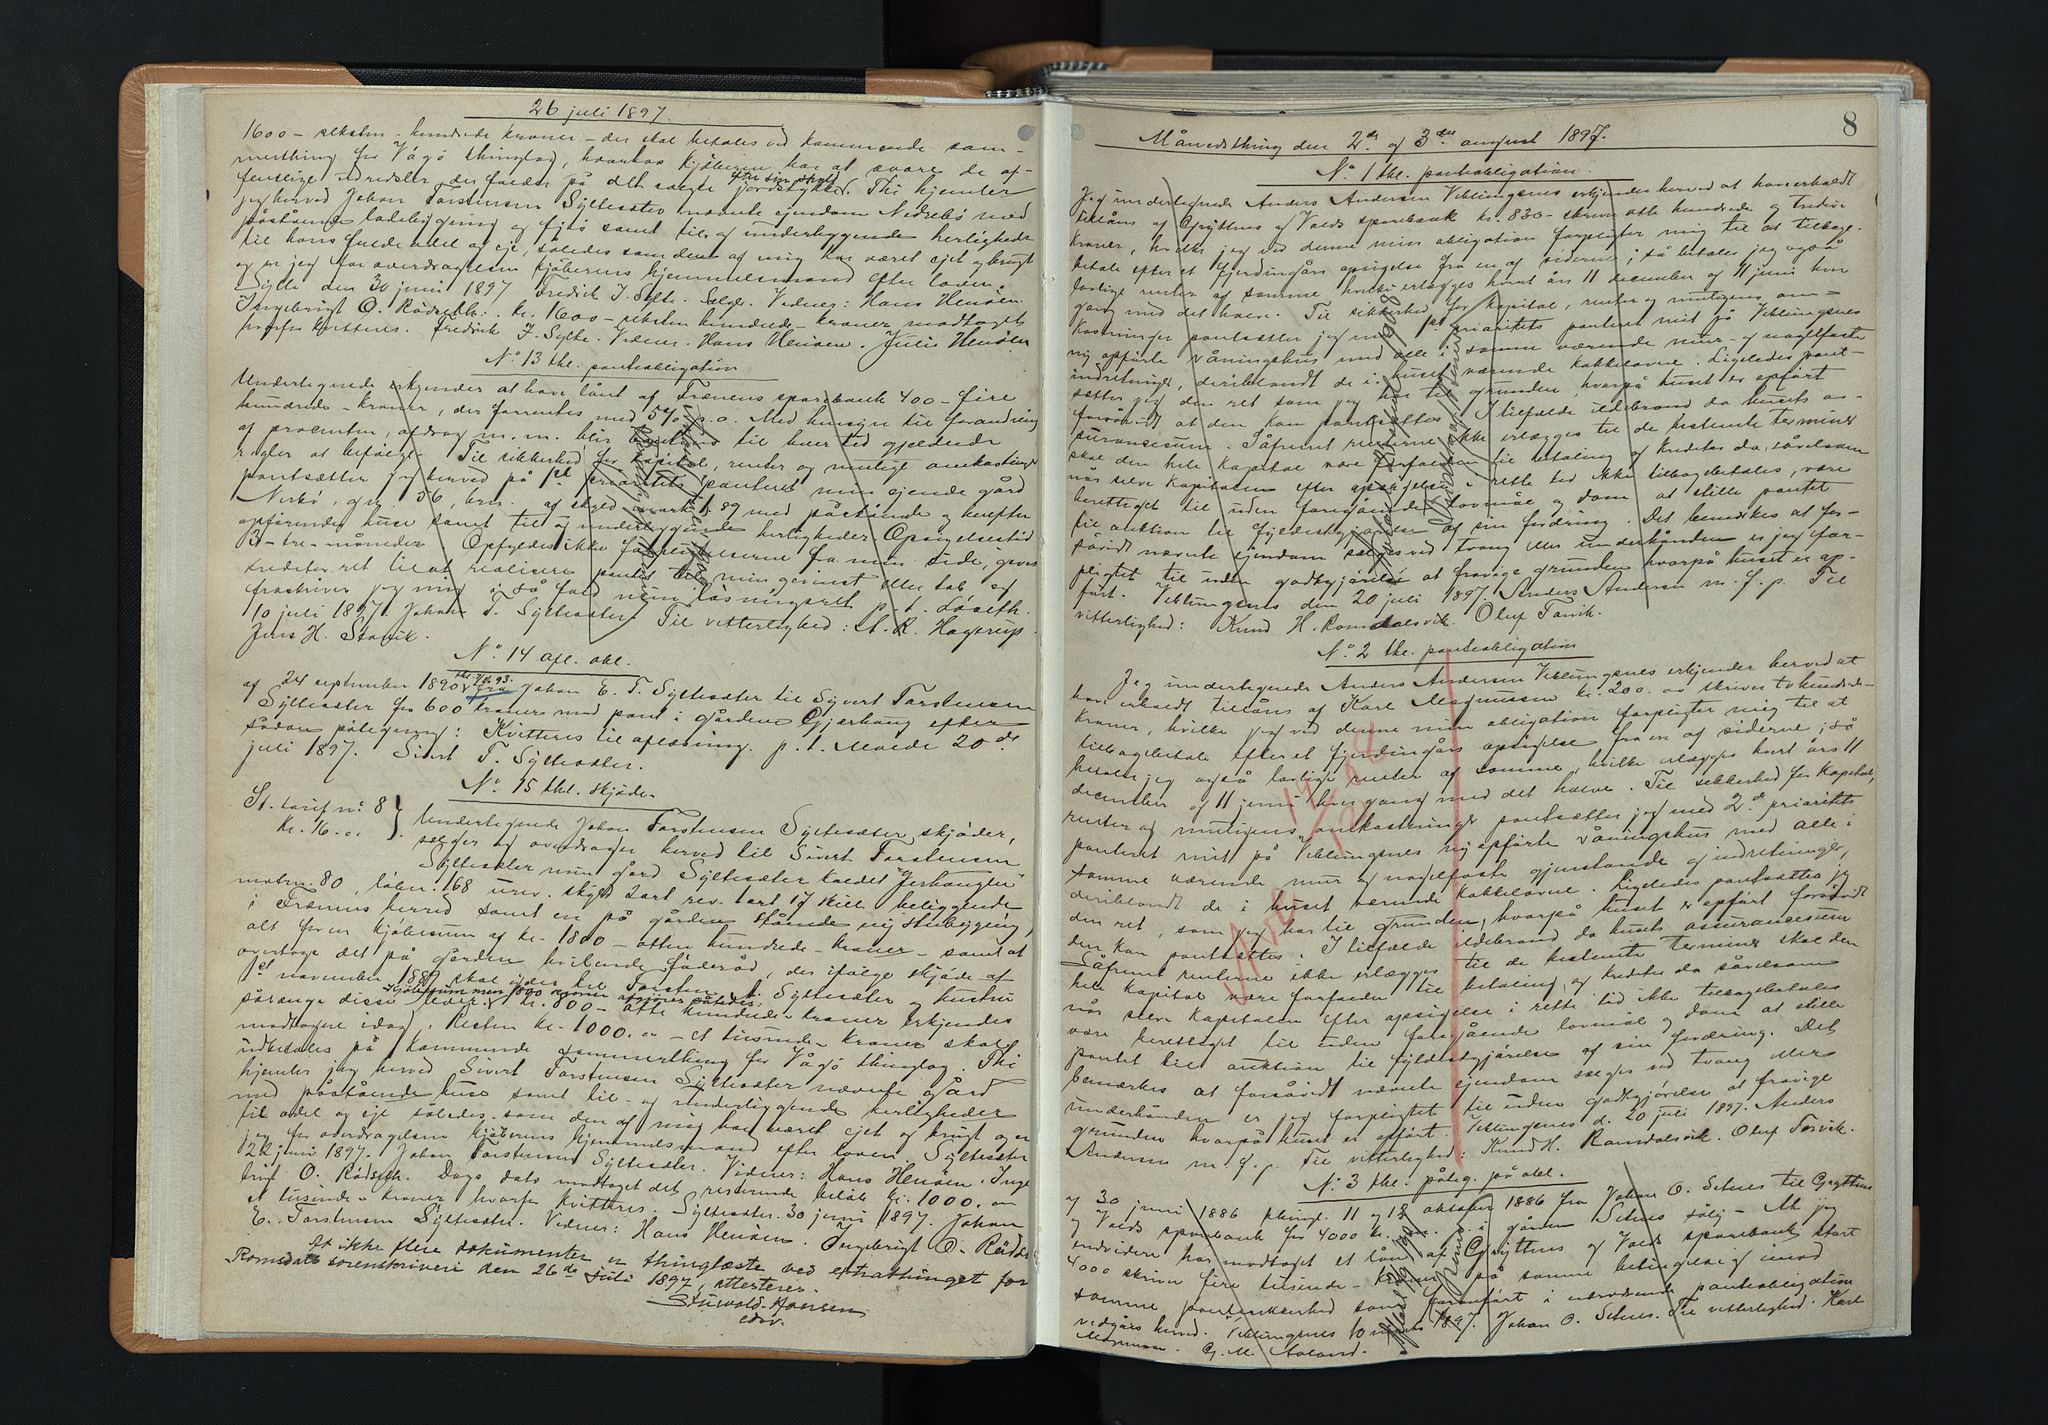 26 juli 1897.
1600 – seksten – hundrede kroner – der skal betales ved kommende som-
merthing for Vågø thinglag, hvorhos kjøberen har at svare de of-
fentlige udredsler der falder på det solgte jordstykke. Thi hjemler
jeg herved Johan Torstensen Syltesæter nævnte ejendom Nedrebø med
påstående ladebygning og fjøs samt til- og underliggende herligheder
til hans fulde odel og eje, således som den af mig har været ejet og brugt
og er jeg for overdragelsen kjøberens hjemmelsmand efter loven.
Sylte den 30 juni 1897 Fredrik J. Sylte. Sælger. Vidner: Hans Henøen.
Ingebrigt O. Rødseth. Kr. 1600 – seksten hundrede – kroner modtaget
hvorfor kvitteres. Fredrik J. Sylte. Vidner: Hans Henøen. Julie Henøen
No. 13 thl. panteobligation
Undertegnede erkjender at have lånt af Frænens sparebank 400 – fire
hundrede – kroner, der forrentes med 5% p.a. Med hensyn til forandring
af procenten, afdrag m. m. blir bankens til hver tid gjældende
regler at befølge. Til sikkerhed for kapital, renter og mulige omkostninger
pantsætter jeg herved på 1st prioritets panteret min ejende gård
opførende huse samt til og underliggende herligheder. Opsigelsestid
3 – tre – måneder. Opfyldes ikke forpligtelserne fra min side, gives
kreditor ret til at realisere pantet til min gevinst eller tab og
fraskriver jeg mig i så fald min løsningsret.
10 juli 1897. Johan T. Syltesæter. Til vitterlighed: A. K. Hagerup.
Jens H. Stavik.
No. 14 afl. obl.
af 24 september 1890 fra Johan E. T. Syltesæter til Syvert Torstensen
Syltesæter for 600 kroner med pant i gården Gjerhaug efter
sådan pålegning: Kvitteres til aflæsning. p. t. Molde 20de
juli 1897. Sivert T. Syltesæter.
No. 15 thl. skjøde.
St. tarif no. 8
Kr. 16.00
Undertegnede Johan Torstensen Syltesæter skjøder,
sælger og overdrager herved til Sivert Torstensen
Syltesæter min gård Syltesæter kaldet "Jerhaugen"
matrn. 80, løbn. 168 urev. skyld 2 ort rev. 1 ort 17 skill. beliggende
i Frænens herred samt en på gården stående ny stuebygning,
alt for en kjøbesum af kr. 1800 – atten hundrede – kroner – samt at
overtage det på gården hvilende føderåd, der ifølge skjøde af
1st november 1889 skal ydes til Torsten A. Syltesæter og hustru
sålænge disse lever. Kr. 800 – otte hundrede – kroner erkjendes
modtagne idag. Resten kr. 1000.00 – et tusinde – kroner skal
udbetales på kommende sommerthing for Vågø thinglag. Thi
hjemler jeg herved Sivert Torstensen Syltesæter nævnte gård
med påstående huse samt til- og underliggende herligheder
til odel og eje således som den af mig har været ejet og brugt og er
jeg for overdragelsen kjøberens hjemmelsmand efter loven. Syltesæter
22 juni 1897. Johan Torstensen Syltesæter. Vidner: Hans Henøen. Inge-
brigt O. Rødseth. Dags dato modtaget det resterende beløb kr. 1000.00
et tusinde – kroner hvorfor kvitteres. Syltesæter. 30 juni 1897. Johan
E. Torstensen Syltesæter. Vidner: Hans Henøen. Ingebrigt O. Rødseth
At ikke flere dokumenter er thinglæste ved extrathinget for
Romsdals sorenskriveri den 26de juli 1897, attesterer
8
Månedsthing den 2de og 3die august 1897.
No. 1 thl. panteobligation.
Jeg undertegnede Anders Andersen Veblungsnes erkjender herved at have erholdt
tillåns af Gryttens og Volds sparebank kr. 830 – skriver otte hundrede og tredive
kroner, hvilke jeg ved denne min obligation forpligter mig til at tilbage-
betale efter et fjerdingårs opsigelse fra en af siderne; så betaler jeg også
lovlige renter af samme hvilke erlægges hvert års 11 december og 11 juni hver
gang med det halve. Til sikkerhed for kapital, renter og muligens om-
kostninger pantsætter jeg med 1st prioritets panteret mit på Veblungsnes
ny opførte våningshus med alle i samme værende mur- og nagelfaste
indretninger, deriblandt de i huset værende kakkelovne. Ligeledes pant-
sætter jeg den ret som jeg har til grunden, hvorpå huset er opført
forsåvidt, at den kan pantsættes. I tilfælde ildebrand da husets as-
surancesum. Såfremt renterne ikke erlægges til de bestemte terminer
skal den hele kapital være forfalden til betaling og kreditor da, såvelsom
når selve kapitalen efter opsigelse i rette tid ikke tilbagebetales, være
berettiget til uden foregående lovmål og dom at stille pantet
til auktion til fyldestgjørelse af sin fordring. Det bemærkes at for-
såvidt nævnte ejendom sælges ved tvang eller underhånden er jeg for-
pligtet til uden godtgjørelse at fravige grunden hvorpå huset er op-
ført. Veblungsnes den 20 juli 1897. Anders Andersen m. f. p. Til
vitterlighed: Knud H. Romsdalsvik. Oluf Torvik.
No. 2 thl. panteobligation
Jeg undertegnede Anders Andersen Veblungsnes erkjender herved at
have erholdt tillåns af Karl Magnussen kr. 200.00 skriver tohundrede –
kroner, hvilke jeg ved denne min obligation forpligter mig til at
tilbagebetale efter et fjerdingårs opsigelse fra en af siderne; så
betaler jeg også lovlige renter af samme, hvilke erlægges hvert års 11
december og 11 juni hver gang med det halve. Til sikkerhed for kapital,
renter og muligens omkostninger pantsætter jeg med 2d prioritets
panteret mit på Veblungsnes ny opførte våningshus med alle i
samme værende mur og nagelfaste gjenstande og indretninger,
deriblandt de i huset værende kakkelovne. Ligeledes pantsættes jeg
den ret, som jeg har til grunden, hvorpå huset er opført forsåvidt
den kan pantsættes. I tilfælde ildebrand da husets assurancesum
Såfremt renterne ikke erlægges til de bestemte terminer skal den
hele kapital være forfalden til betaling og kreditor da såvelsom
når selve kapitalen efter opsigelse i rette tid ikke tilbagebetales
være berettiget til uden foregående lovmål og dom at stille
pantet til auktion til fyldestgjørelse af sin fordring. Det
bemærkes at forsåvidt nævnte ejendom sælges ved tvang eller
underhånden er jeg forpligtet til uden godtgjørelse at fravige
grunden hvorpå huset er opført. Veblungsnes d. 20 juli 1897. Anders
Andersen m. f. p. Til vitterlighed: Knud H. Romsdalsvik. Oluf Torvik.
No. 3 thl. påteg. på obl.
af 30 juni 1886 thingl. 11 og 12 oktober 1886 fra Johan O. Setnes til Gryttens
og Volds sparebank for 4000 kr. m. p. i gården Setnes såly. – At jeg
endvidere har modtaget et lån af Gryttens og Volds sparebank stort
4000 skriver fire tusinde – kroner på samme betingelse og imod
samme pantesikkerhed som foranført i nærværende panteobligation
vedgåes herved. Veblungsnes 1897. Johan O. Setnes. Til vitterlighed. Karl
Magnussen. G. M. Aaland.